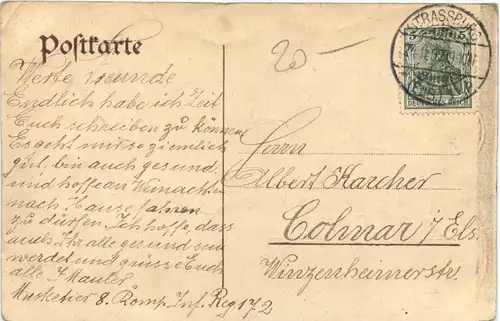 Postkarte
20 –
STRASSBURG
5 5
DEUTSCHES REICH
Werte Freunde
Endlich habe ich Zeit
Euch schreiben zu können
Es geht mir so ziemlich
gut, bin auch gesund
und hoffe an Weinachten
nach Hause fahren
zu dürfen. Ich hoffe, dass
auch Ihr alle gesund sein
werdet und grüsse Euch
alle
Musketier 8. Komp. Inf. Reg 172
Herrn
Albert Karcher
Colmar i/Els.
Winzenheimerstr.